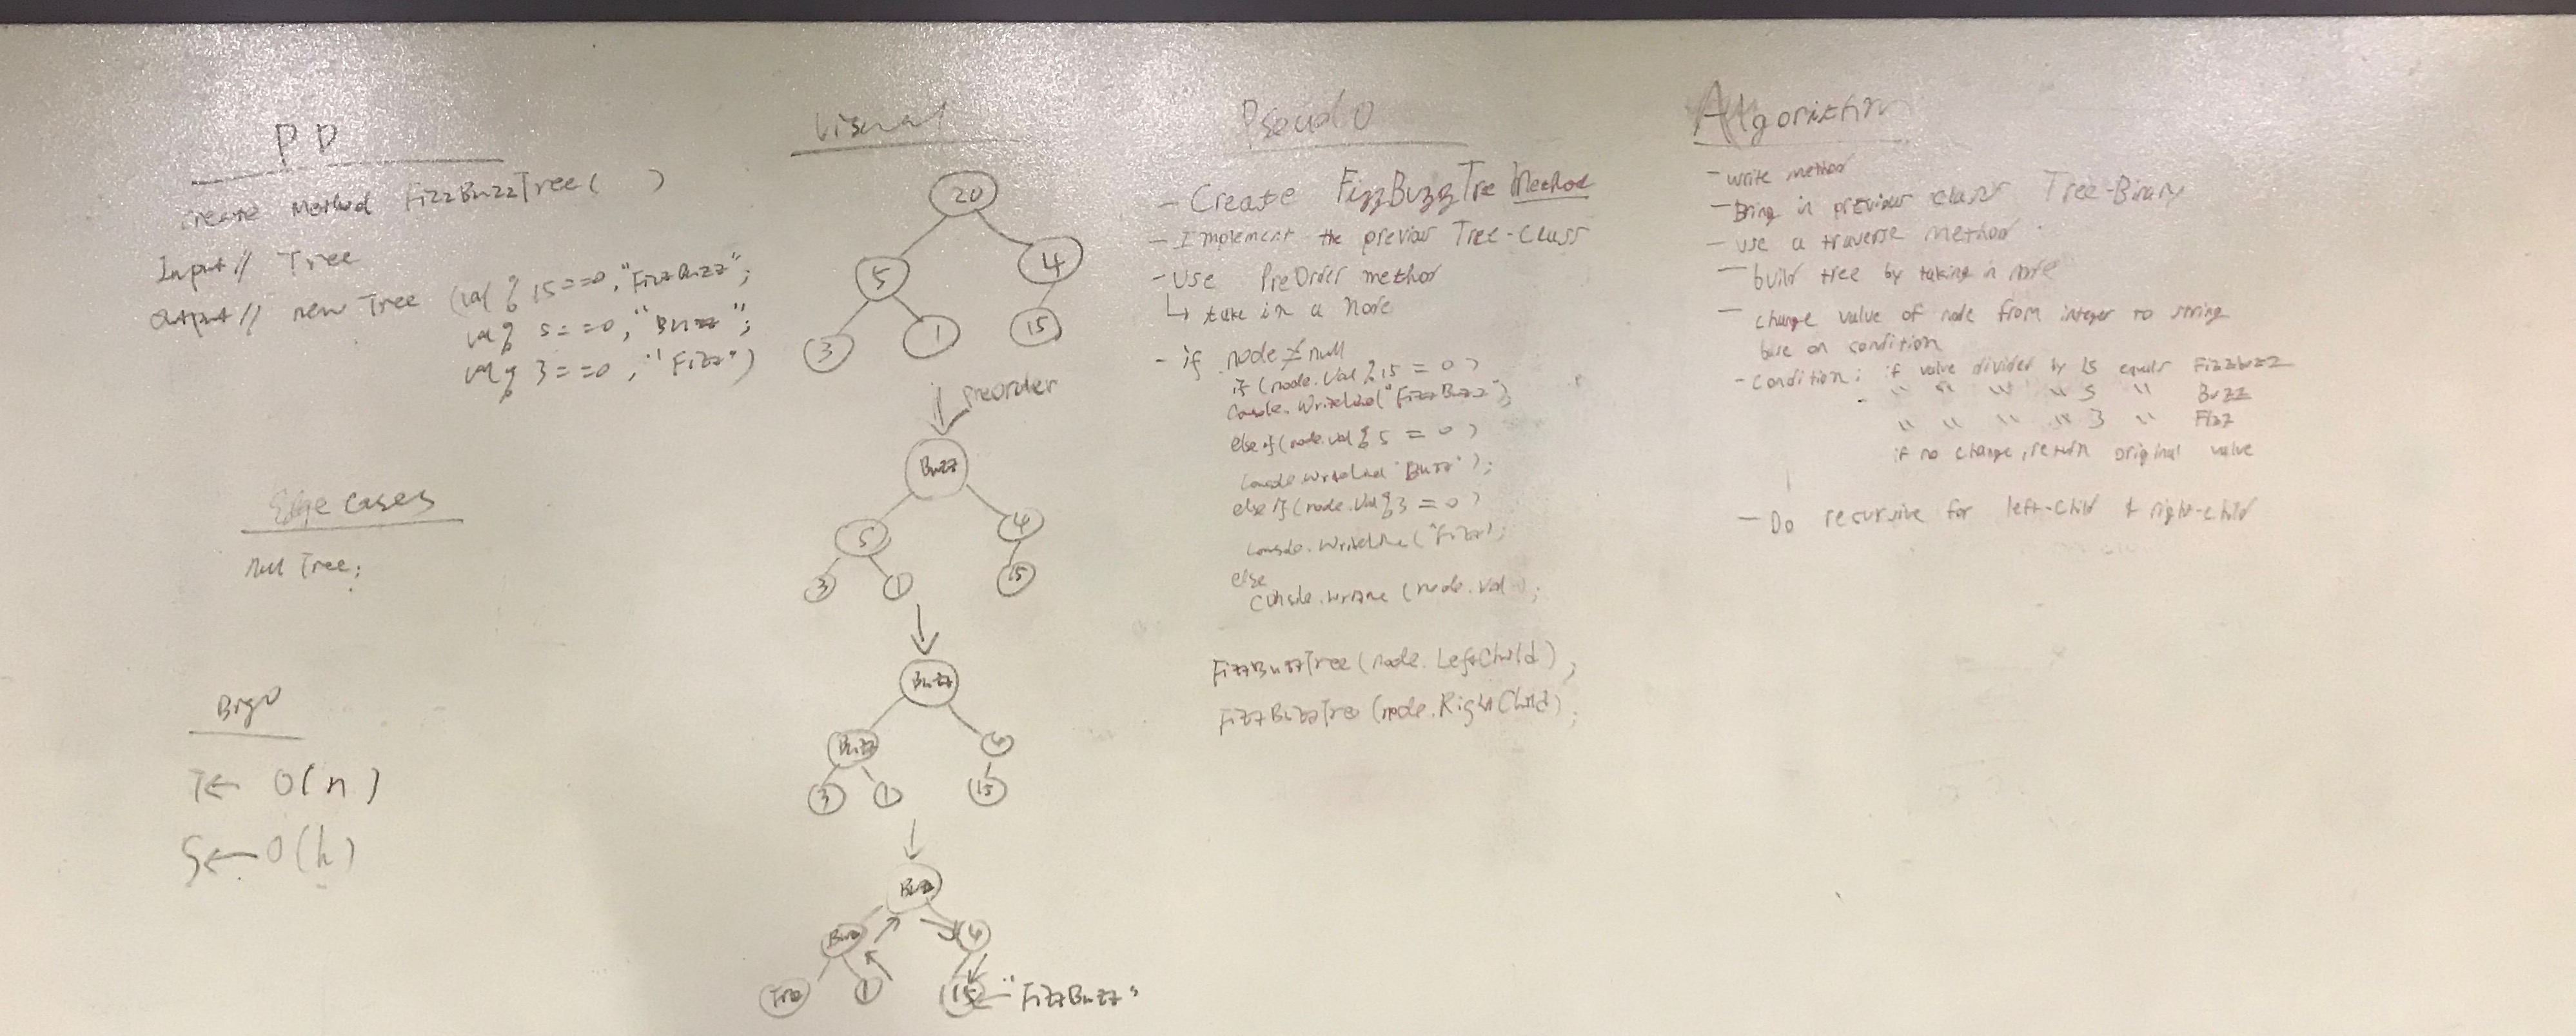 PD
create method FizzBuzzTree( )
Input// Tree
Output// new Tree (val % 15==0,"FizzBuzz";
val % 5==0,"Buzz";
val % 3==0,"Fizz")
Edge cases
null Tree;
BigO
T← O(n)
S← O(h)
Visual
20
5 4
3 1 15
preorder
Buzz
5 4
3 1 15
Buzz
Buzz 4
3 1 15
Buzz
Buzz 4
Fizz 1 15 ← "FizzBuzz"
Pseudo
- Create FizzBuzzTree Method
- Implement the previous Tree-class
- Use PreOrder method
↳ take in a Node
- if node ≠ null
if (node.Val % 15 = 0)
Console.WriteLine("FizzBuzz");
else if (node.val % 5 = 0)
Console.WriteLine("Buzz");
else if (node.Val % 3 = 0)
Console.WriteLine("Fizz");
else
Console.Write (node.Val );
FizzBuzzTree (node.LeftChild);
FizzBuzzTree (node.RightChild);
Algorithm
- write method
- Bring in previous class Tree-Binary
- use a traverse method
- build tree by taking in node
- change value of node from integer to string
base on condition
- condition: if value divided by 15 equals FizzBuzz
" " " " 5 " Buzz
" " " " 3 " Fizz
if no change, return original value
- Do recursive for left-child & right-child